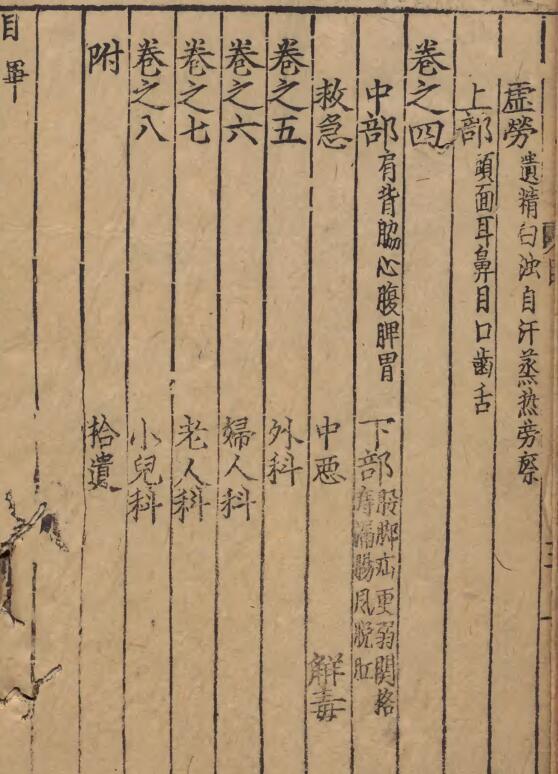 虛勞 遺精白濁自汗蒸热劳瘵
上部 頭面耳鼻目口齒舌
卷之四
中部 肩背脇心腹脾胃 下部 股脚疝更弱関格 痔漏腸風脫肛
救急 中惡 解毒
卷之五 外科
卷之六 婦人科
卷之七 老人科
卷之八 小兒科
附 拾遺
目畢